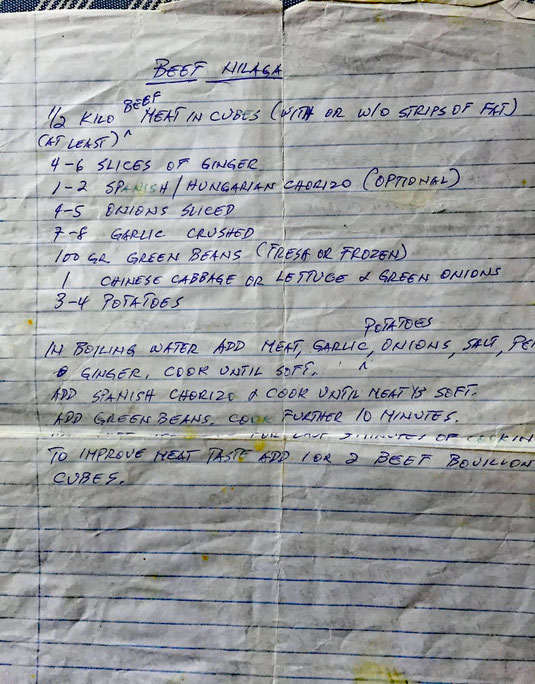 BEEF NILAGA
1/2 KILO BEEF MEAT IN CUBES (WITH OR W/O STRIPS OF FAT)
(AT LEAST) ^
4-6 SLICES OF GINGER
1-2 SPANISH/HUNGARIAN CHORIZO (OPTIONAL)
4-5 ONIONS SLICED
7-8 GARLIC CRUSHED
100 GR GREEN BEANS (FRESH OR FROZEN)
1 CHINESE CABBAGE OR LETTUCE & GREEN ONIONS
3-4 POTATOES
POTATOES
IN BOILING WATER ADD MEAT, GARLIC, ^ ONIONS, SALT, PE
& GINGER, COOK UNTIL SOFT.
ADD SPANISH CHORIZO & COOK UNTIL MEAT IS SOFT.
ADD GREEN BEANS. COOK FURTHER 10 MINUTES.
FOR LAST MINUTES OF COOKIN
TO IMPROVE MEAT TASTE ADD 1 OR 2 BEEF BOUILLON
CUBES.